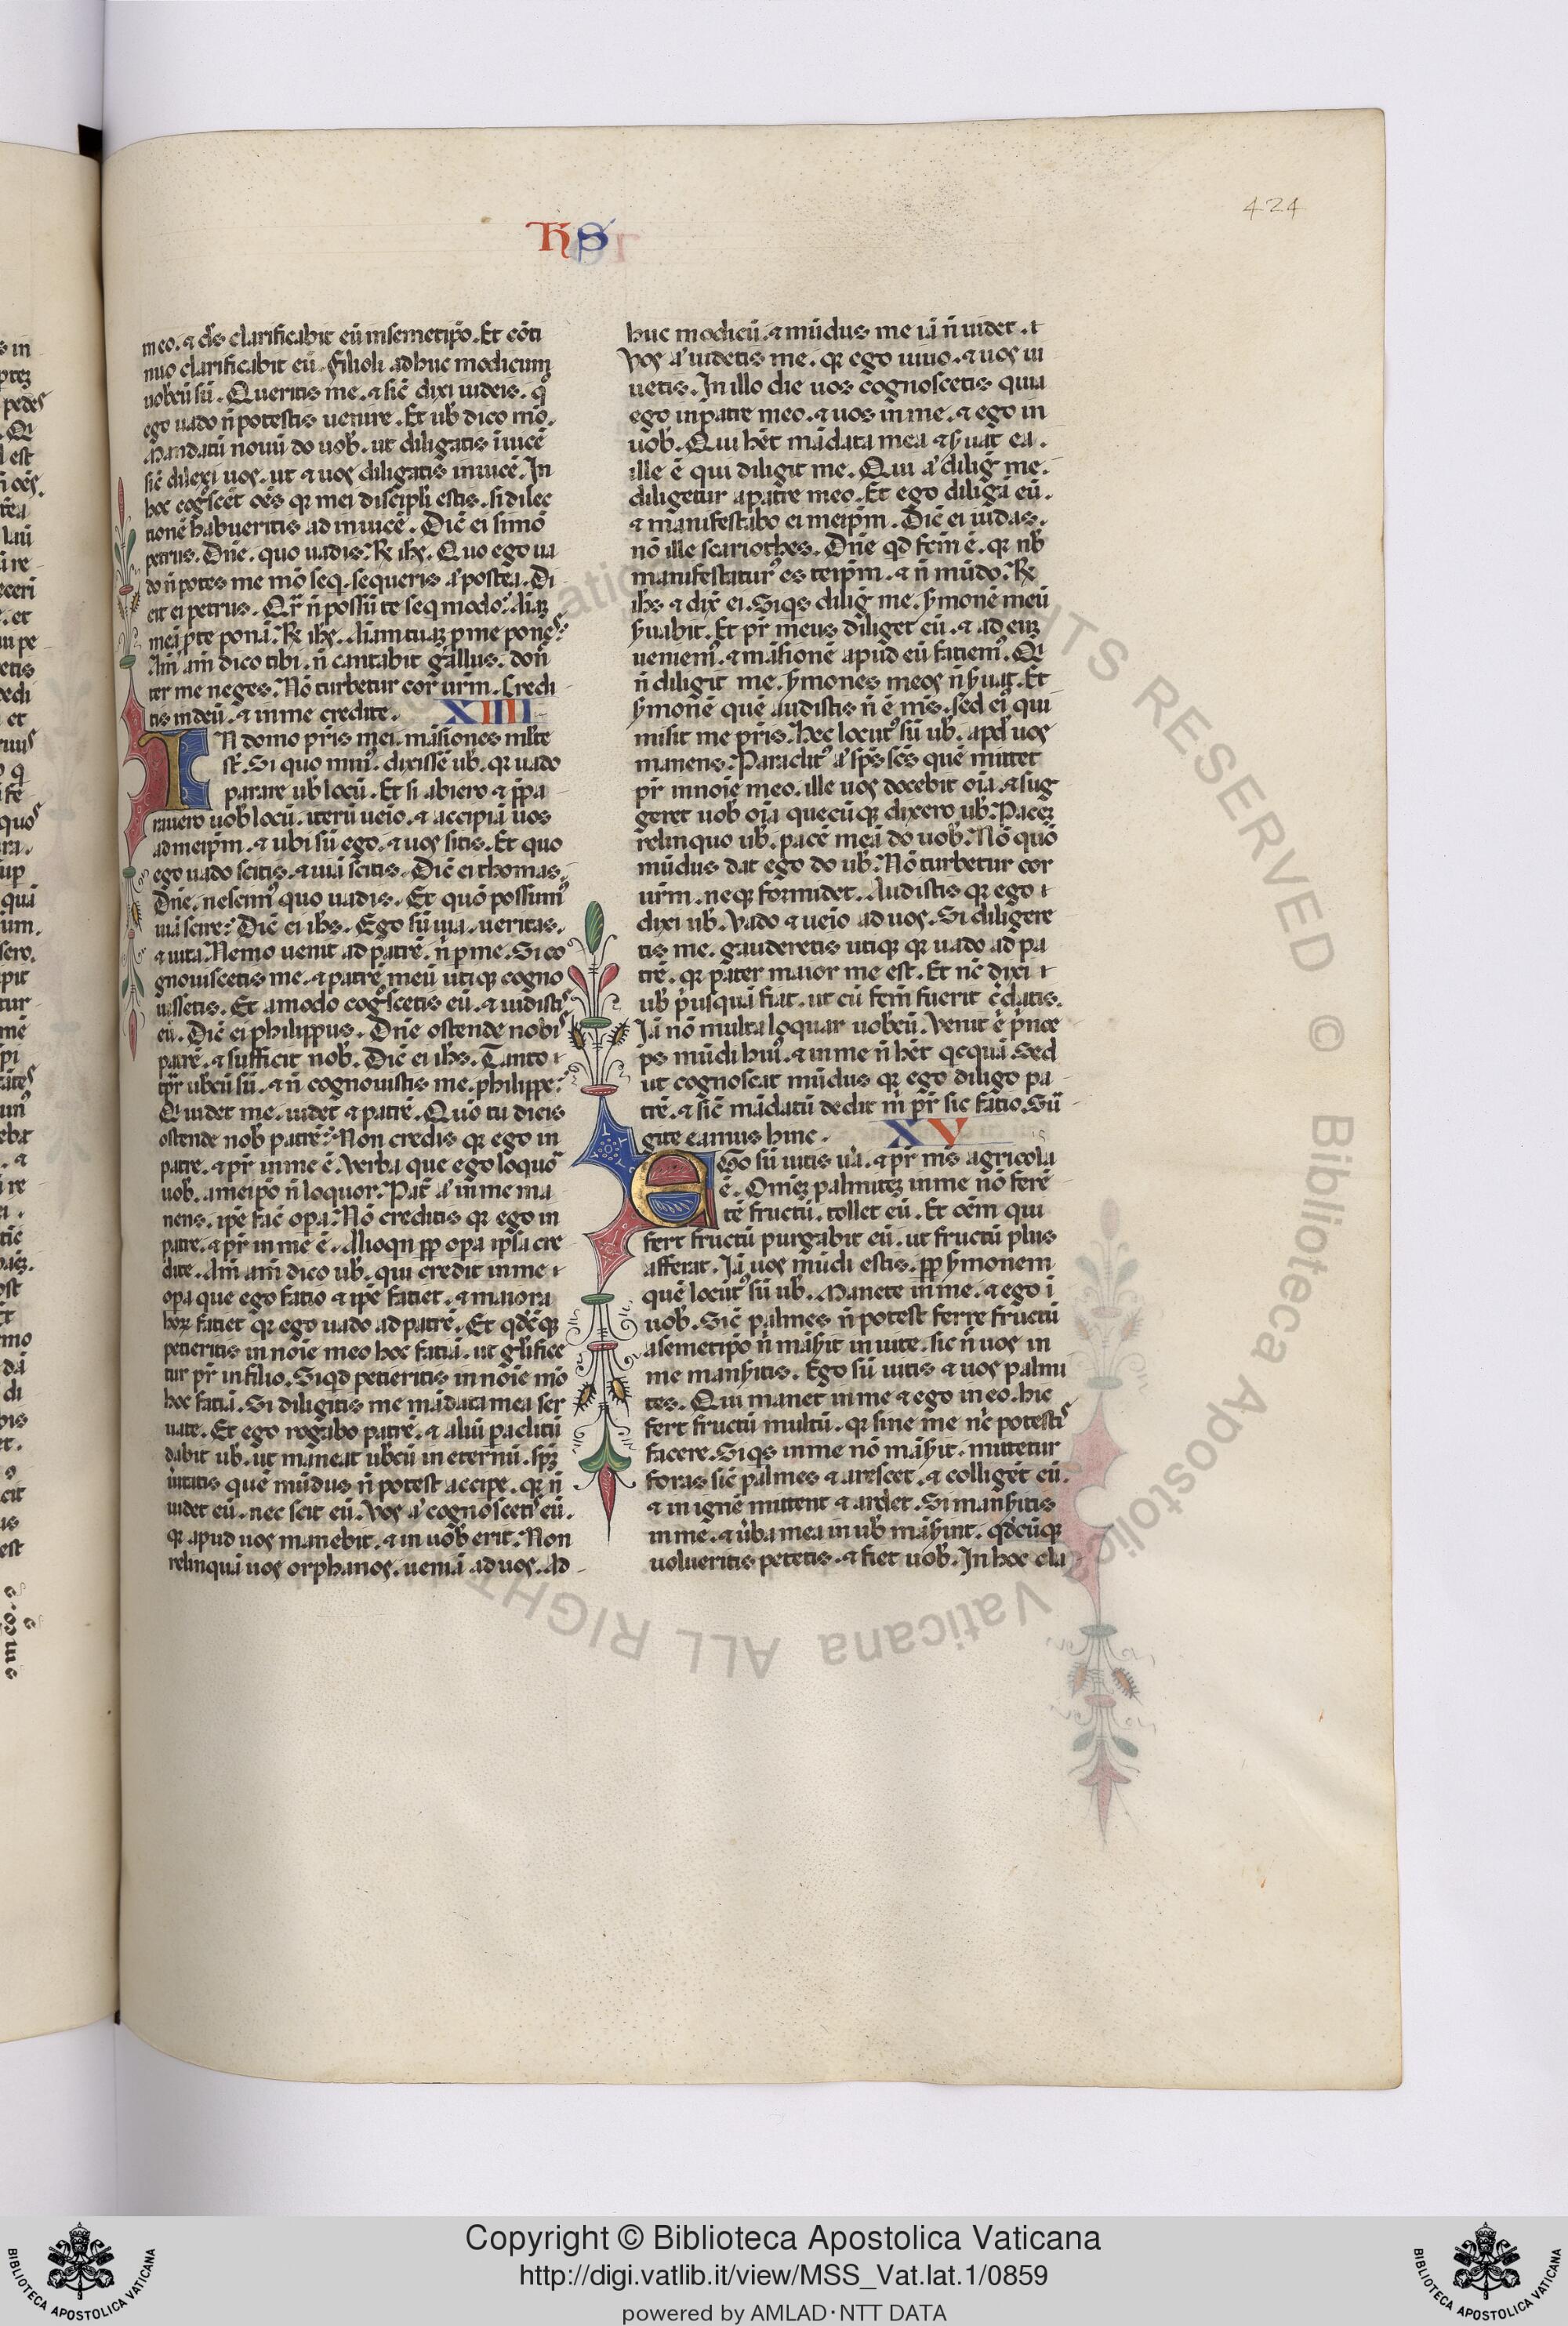 424
hS
meo. ⁊ ds clarificabit eū in semetip̄o. Et ꝯti
nuo clarificabit eū. Filioli adhuc modicum
uobcū sū. Queritis me. ⁊ sic̄ dixi iudeis. qͦ
ego uado n̄ potestis uenire. Et ub̄ dico mō.
Mandatū nouū do uob̄. ut diligatis īuicē
sic̄ dilexi uos. ut ⁊ uos diligatis inuicē. In
hoc cogscēt oēs qꝛ mei discipli estis. si dilec
tionē habueritis ad inuicē. Dic̄ ei simō
petrus. Dn̄e. quo uadis. R̄ ih̄c. Quo ego ua
do n̄ potes me mō seq. sequeris aͥ postea. Di
cit ei petrus. Qr̄ n̄ possū te seq modo. Aīaꝫ
meā p̱ te ponā. R̄ ih̄c. Aīam tuaꝫ p̱ me pones.
Am̄ am̄ dico tibi. n̄ cantabit gallus. don̄
ter me neges. Nō turbetur cor ur̄m. Credi
tis in deū. ⁊ in me credite. XIIII
IN domo pr̄is mei. māsiones mlte
st̄. Si quo minꝰ. dixissē ub̄. qꝛ uado
parare ub̄ locū. Et si abiero ⁊ p̄pa
rauero uob̄ locū. iterū ueīo. ⁊ accipiā uos
ad meip̄m. ⁊ ubi sū ego. ⁊ uos sitis. Et quo
ego uado scitis. ⁊ uiā scitis. Dic̄ ei thomas.
Dn̄e. nescimꝰ quo uadis. Et quō possumꝰ
uiā scire. Dic̄ ei ih̄s. Ego sū uia. ueritas.
⁊ uita. Nemo uenit ad patrē. n̄ p̱ me. Si co
gnouiscetis me. ⁊ patrē meū utiqꝫ cogno
uissetis. Et amodo cogscetis eū. ⁊ uidistis
eū. Dic̄ ei philippus. Dn̄e ostende nobis
patrē. ⁊ sufficit nob̄. Dic̄ ei ih̄s. Tanto
tp̄r ubcū sū. ⁊ n̄ cognouistis me. philippe.
Q̇ uidet me. uidet ⁊ patrē. Quō tu dicis
ostende nob̄ patrē. Non credis qꝛ ego in
patre. ⁊ pr̄ in me ē. Verba que ego loquoꝛ
uob̄. a meip̄o n̄ loquor. Pat̄ aͥ in me ma
nens. ip̄e fac̄ opa. Nō creditis qꝛ ego in
patre. ⁊ pr̄ in me ē. Alioqn pp̄ opa ipsa cre
dite. Am̄ am̄ dico ub̄. qui credit in me
opa que ego fatio ⁊ ip̄e fatiet. ⁊ maiora
hoꝝ fatiet qꝛ ego uado ad patrē. Et qdcūqꝫ
petieritis in noīe meo hoc fatiā. ut glifice
tur pr̄ in filio. Siqd petieritis in noīe mō
hoc fatiā. Si diligitis me mādata mea ser
uate. Et ego rogabo patrē. ⁊ aliū paclitū
dabit ub̄. ut maneat ubcū in eternū. sp̄ꝫ
ūitatis quē mūdus n̄ potest accipe. qꝛ n̄
uidet eū. nec scit eū. Vos aͥ cognoscetis eū.
qꝛ apud uos manebit. ⁊ in uob̄ erit. Non
relinquā uos orphanos. ueniā ad uos. Ad
huc modicū. ⁊ mūdus me iā n̄ uidet.
Vos aͥ uidetis me. qꝛ ego uiuo. ⁊ uos ui
uetis. In illo die uos cognoscetis quia
ego in patre meo. ⁊ uos in me. ⁊ ego in
uob̄. Qui hēt mādata mea ⁊ ẜuat ea.
ille ē qui diligit me. Qui aͥ diliḡ me.
diligetur a patre meo. Et ego diligā eū.
⁊ manifestabo ei meip̄m. Dic̄ ei iudas.
nō ille scariothes. Dn̄e qd fcm̄ ē. qꝛ nb̄
manifestaturꝰ es teip̄m. ⁊ n̄ mūdo. R̄
ih̄s ⁊ dix̄ ei. Siqs diliḡ me. ẜmonē meū
ẜuabit. Et pr̄ meus diliget eū. ⁊ ad euꝫ
ueniemꝰ. ⁊ māsionē apud eū fatiemꝰ. Q̇
n̄ diligit me. ẜmones meos n̄ ẜuat. Et
ẜmonē quē audistis n̄ ē m̄s. sed eiꝰ qui
misit me pr̄is. Hec locutꝰ sū ub̄. apd uos
manens. Paraclitꝰ aͥ sp̄s sc̄s quē mittet
pr̄ in noīe meo. ille uos docebit oīa. ⁊ sug
geret uob̄ oīa quecūqꝫ dixero ub̄. Paceꝫ
relinquo ub̄. pacē meā do uob̄. Nō quō
mūdus dat ego do ub̄. Nō turbetur cor
ur̄m. neqꝫ formidet. Audistis qꝛ ego
dixi ub̄. Vado ⁊ ueīo ad uos. Si diligere
tis me. gauderetis utiqꝫ qꝛ uado ad pa
trē. qꝛ pater maior me est. Et nc̄ dixi
ub̄ pͥusquā fiat. ut cū fcm̄ fuerit c̄datis.
Iā nō multa loquar uobcū. Venit ē pͥnce
ps mūdi huiꝰ. ⁊ in me n̄ hēt qcquā. Sed
ut cognoscat mūdus qꝛ ego diligo pa
trē. ⁊ sic̄ mādatū dedit m̄ pr̄ sic fatio. Sū
gite eamus hinc. XV
EGo sū uitis ūa. ⁊ pr̄ m̄s agricola
ē. Omēꝫ palmiteꝫ in me nō ferē
tē fructū. tollet eū. Et oēm qui
fert fructū purgabit eū. ut fructū plus
afferat. Iā uos mūdi estis. pp̄ ẜmonem
quē locutꝰ sū ub̄. Manete in me. ⁊ ego ī
uob̄. Sic̄ palmes n̄ potest ferre fructū
a semetip̄o n̄ māẜit in uite. sic n̄ uos in
me manẜitis. Ego sū uitis ⁊ uos palmi
tes. Qui manet in me ⁊ ego in eo. hic
fert fructū multū. qꝛ sine me nc̄ potestis
facere. Siqs in me nō māẜit. mittetur
foras sic̄ palmes ⁊ arescet. ⁊ colligēt eū.
⁊ in ignē mittent ⁊ ardet. Si manẜitis
in me. ⁊ ūba mea in ub̄ māẜint. qdcūqꝫ
uolueritis petetis. ⁊ fiet uob̄. In hoc cla
Copyright © Biblioteca Apostolica Vaticana
http://digi.vatlib.it/view/MSS_Vat.lat.1/0859
powered by AMLAD·NTT DATA
BIBLIOTECA APOSTOLICA VATICANA
BIBLIOTECA APOSTOLICA VATICANA